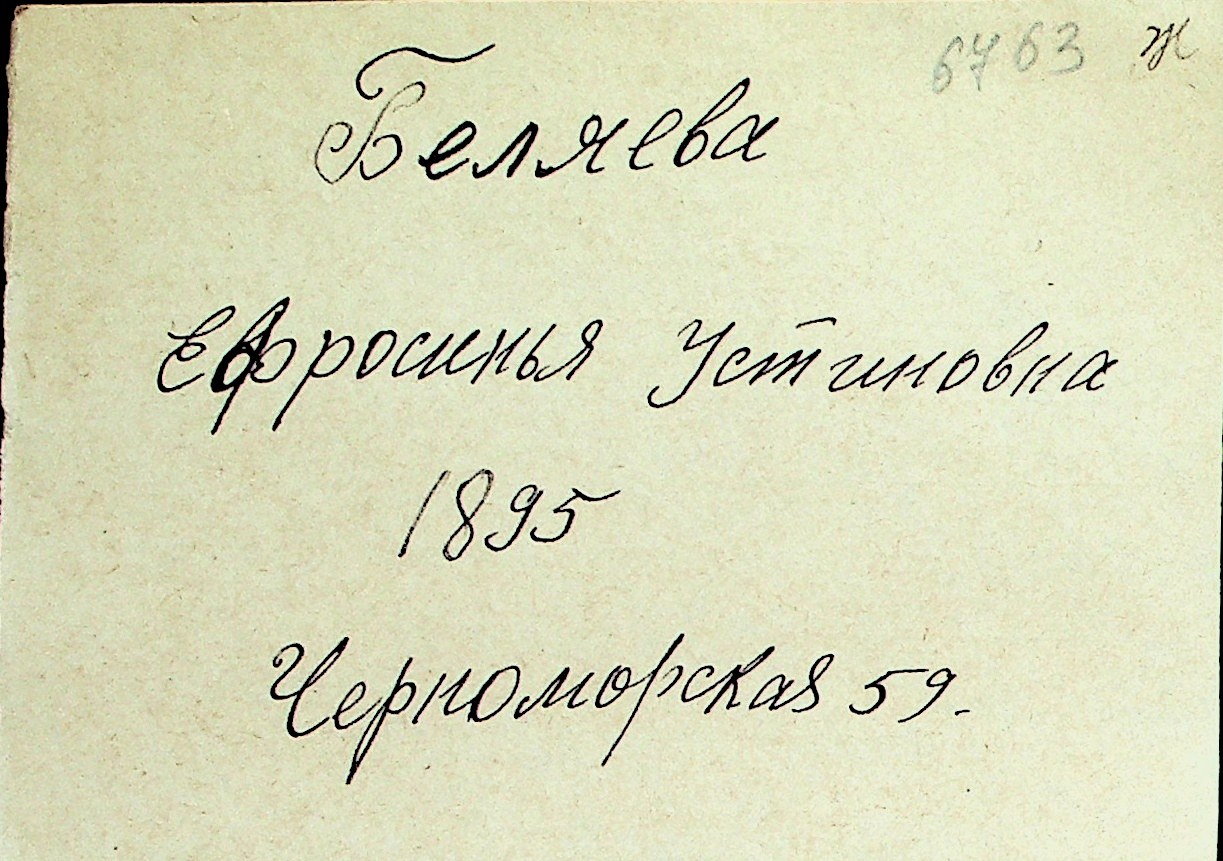 6763 ж
Беляева
Ефросинья Устиновна
1895
Черноморская 59.